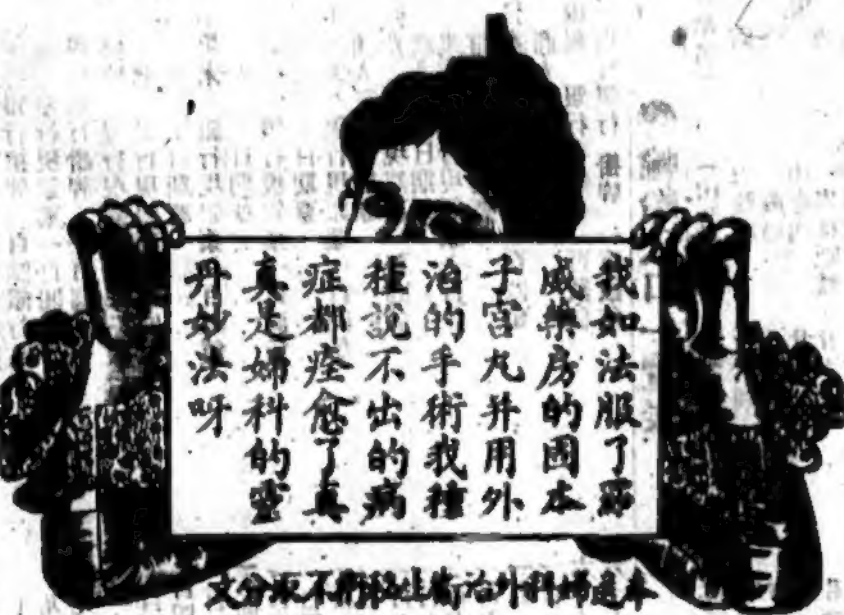 我如法服了
威藥房的固本
子宮丸并用外
治的手術我種
種說不出的病
症都痊愈了真
真是婦科的靈
丹妙法呀
奉送婦科外治衛生秘術不取分文